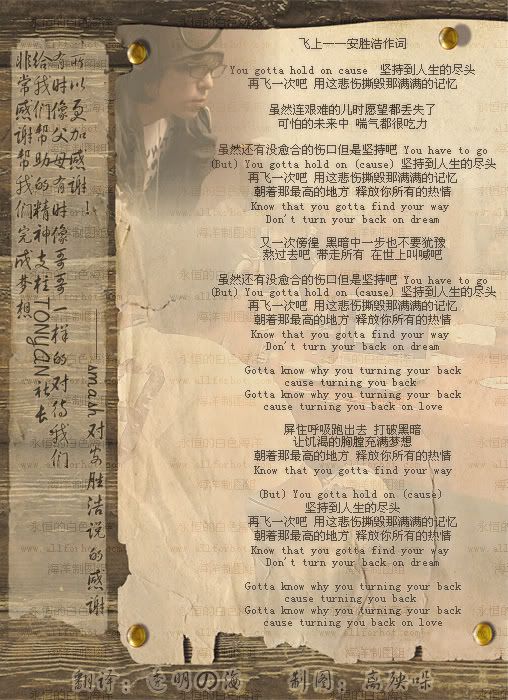 飞上一——安胜洁作词
You gotta hold on cause 坚持到人生的尽头
再飞一次吧 用这悲伤撕毁那满满的记忆
虽然连艰难的儿时愿望都丢失了
可怕的未来中 喘气都很吃力
虽然还有没愈合的伤口但是坚持吧 You have to go
(But) You gotta hold on (cause) 坚持到人生的尽头
再飞一次吧 用这悲伤撕毁那满满的记忆
朝着那最高的地方 释放你所有的热情
Know that you gotta find your way
Don't turn your back on dream
又一次傍徨 黑暗中一步也不要犹豫
熬过去吧 带走所有 在世上叫喊吧
虽然还有没愈合的伤口但是坚持吧 You have to go
(But) You gotta hold on (cause) 坚持到人生的尽头
再飞一次吧 用这悲伤撕毁那满满的记忆
朝着那最高的地方 释放你所有的热情
Know that you gotta find your way
Don't turn your back on dream
Gotta know why you turning your back
cause turning you back
Gotta know why you turning your back
cause turning you back on love
屏住呼吸跑出去 打破黑暗
让饥渴的胸膛充满梦想
朝着那最高的地方 释放你所有的热情
Know that you gotta find your way
(But) You gotta hold on (cause)
坚持到人生的尽头
再飞一次吧 用这悲伤撕毁那满满的记忆
朝着那最高的地方 释放你所有的热情
Know that you gotta find your way
Don't turn your back on dream
Gotta know why you turning your back
cause turning you back
Gotta know why you turning your back
cause turning you back on love
非常感谢帮我们完成梦想
给我们帮助的精神支柱TONYAN社长
有时像父母有时像哥哥一样的对待我们
所以更加感谢!
smash对安胜洁说的感谢
翻译：透明の海 制图：高殃哚
永恒的白色海洋
www.allforhot.com
海洋制图组